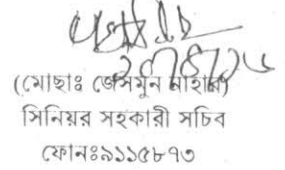 (মোছাঃ জেসমুন নাহার)
সিনিয়র সহকারী সচিব
ফোনঃ৯১১৫৮৭৩